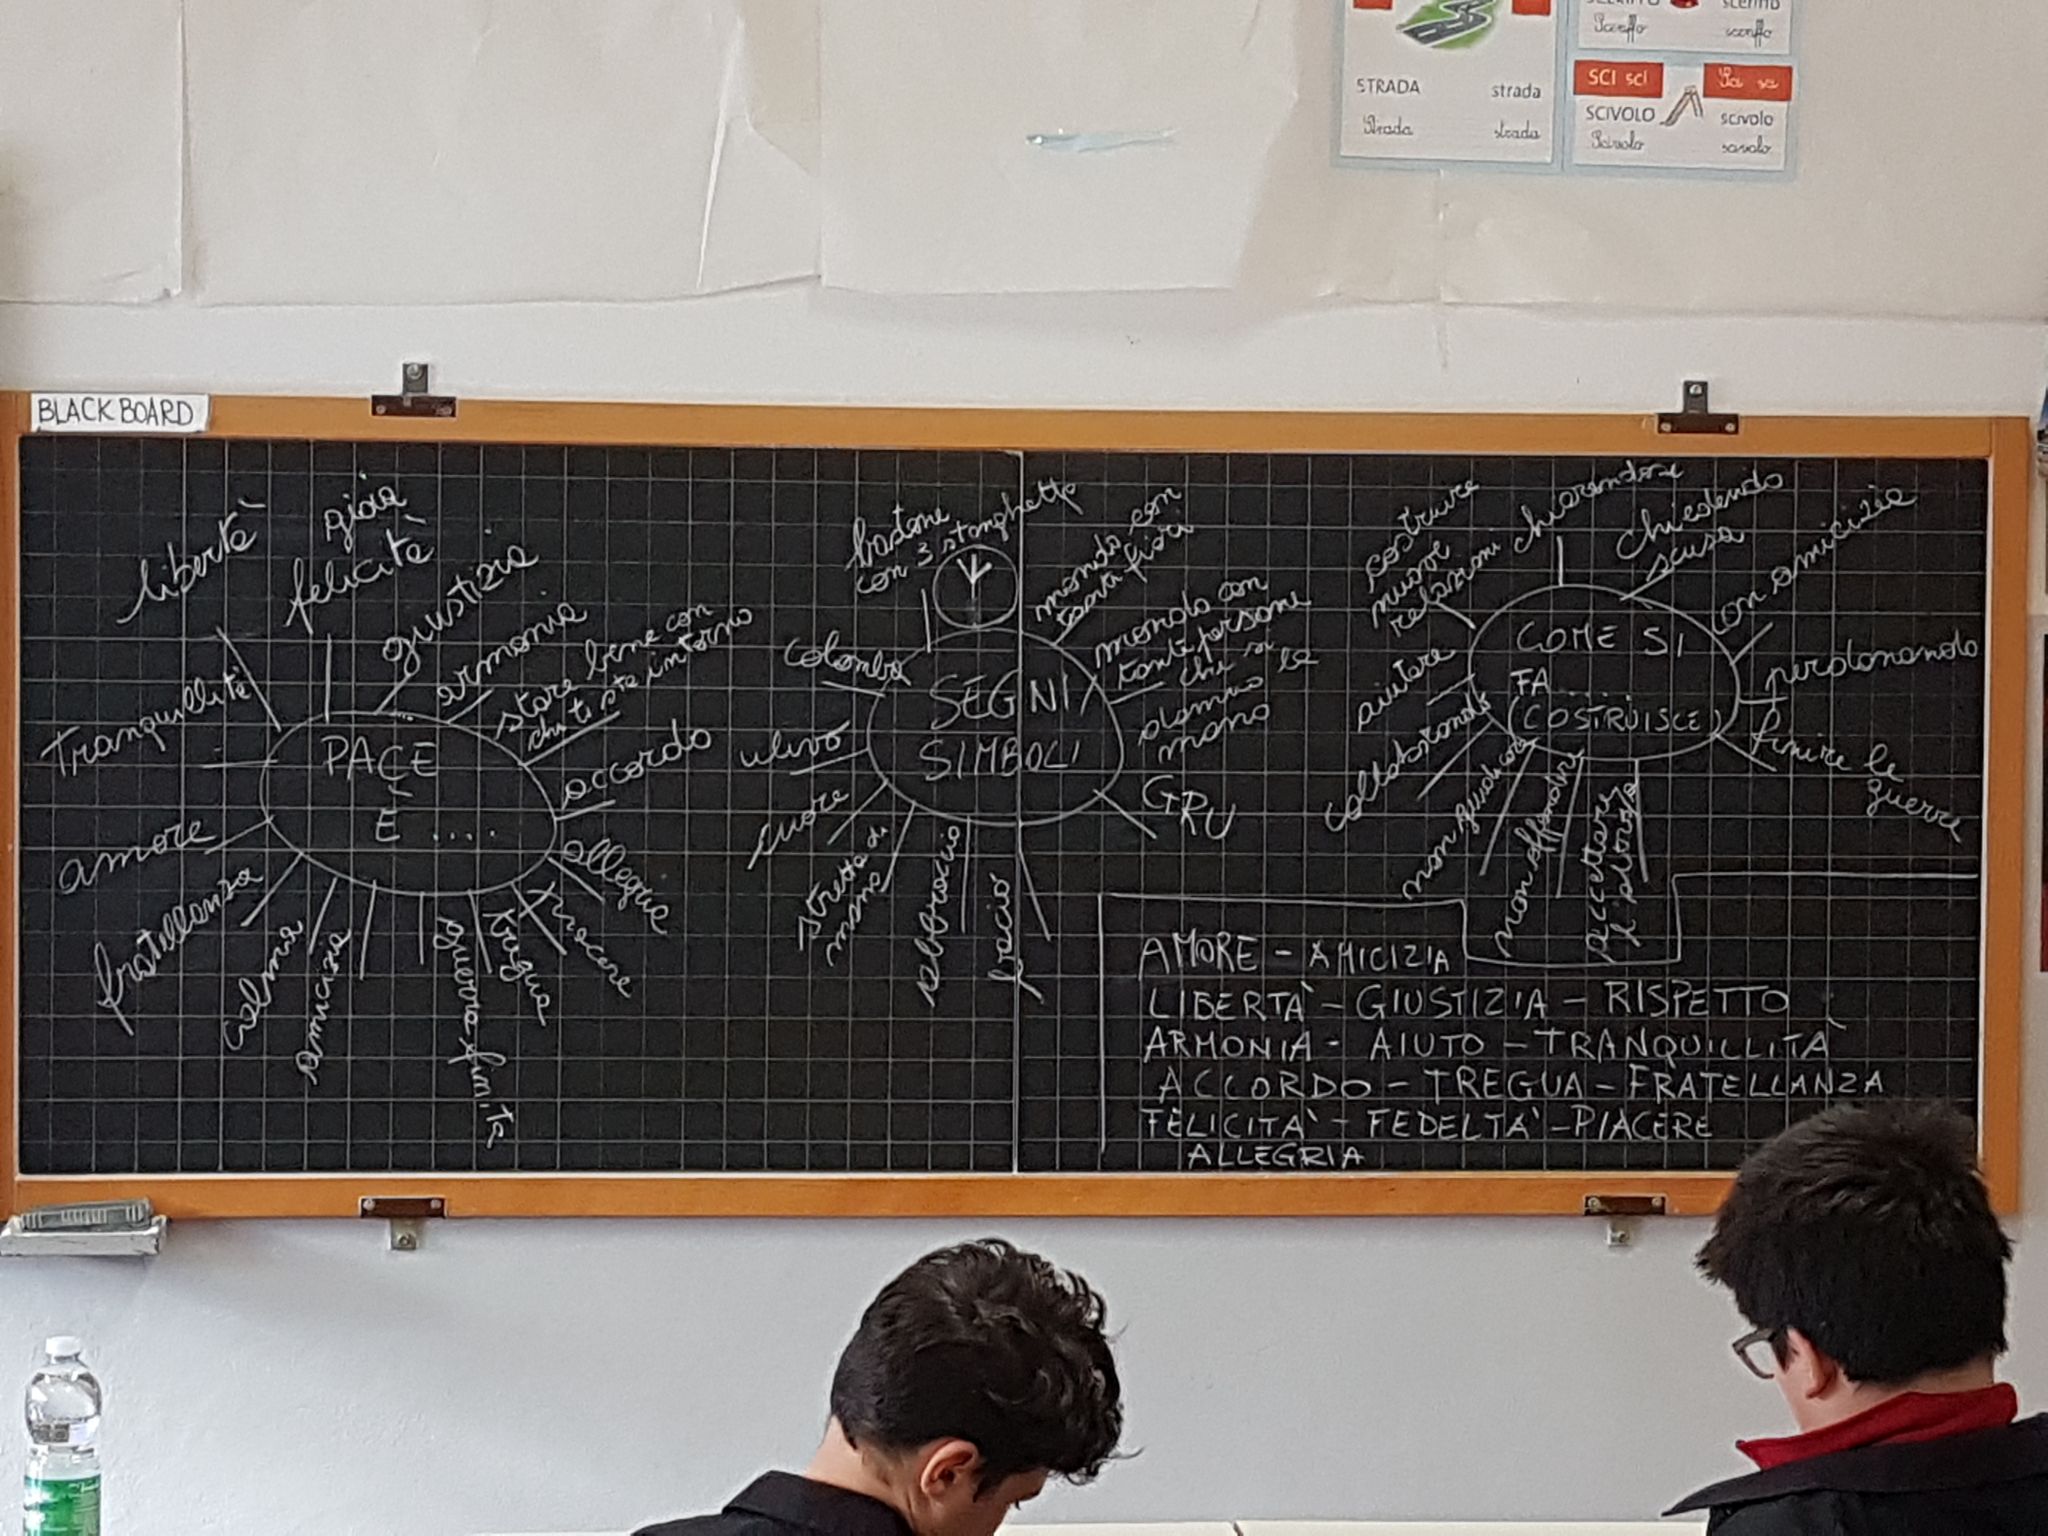 STRADA strada
Strada strada
SCI sci Sci sci
SCIVOLO scivolo
Scivolo scivolo
BLACKBOARD
PACE
È ....
libertà
gioia
felicità
giustizia
armonia
stare bene con
chi ti sta intorno
accordo
allegria
piacere
tregua
guerra finita
amicizia
calma
fratellanza
amore
Tranquillità
SEGNI
SIMBOLI
bastone
con 3 stanghette
mondo con
tanti fiori
mondo con
tante persone
che si
danno la
mano
GRU
bació
abbraccio
stretta di
mano
cuore
ulivo
colomba
COME SI
FA .....
(COSTRUISCE)
costruire
nuove
relazioni
chiarendosi
chiedendo
scusa
con amicizia
perdonando
finire le
guerre
accettare
non offendere
non giudicare
collaborando
aiutare
AMORE - AMICIZIA
LIBERTÀ - GIUSTIZIA - RISPETTO
ARMONIA - AIUTO - TRANQUILLITÀ
ACCORDO - TREGUA - FRATELLANZA
FELICITÀ - FEDELTÀ - PIACERE
ALLEGRIA